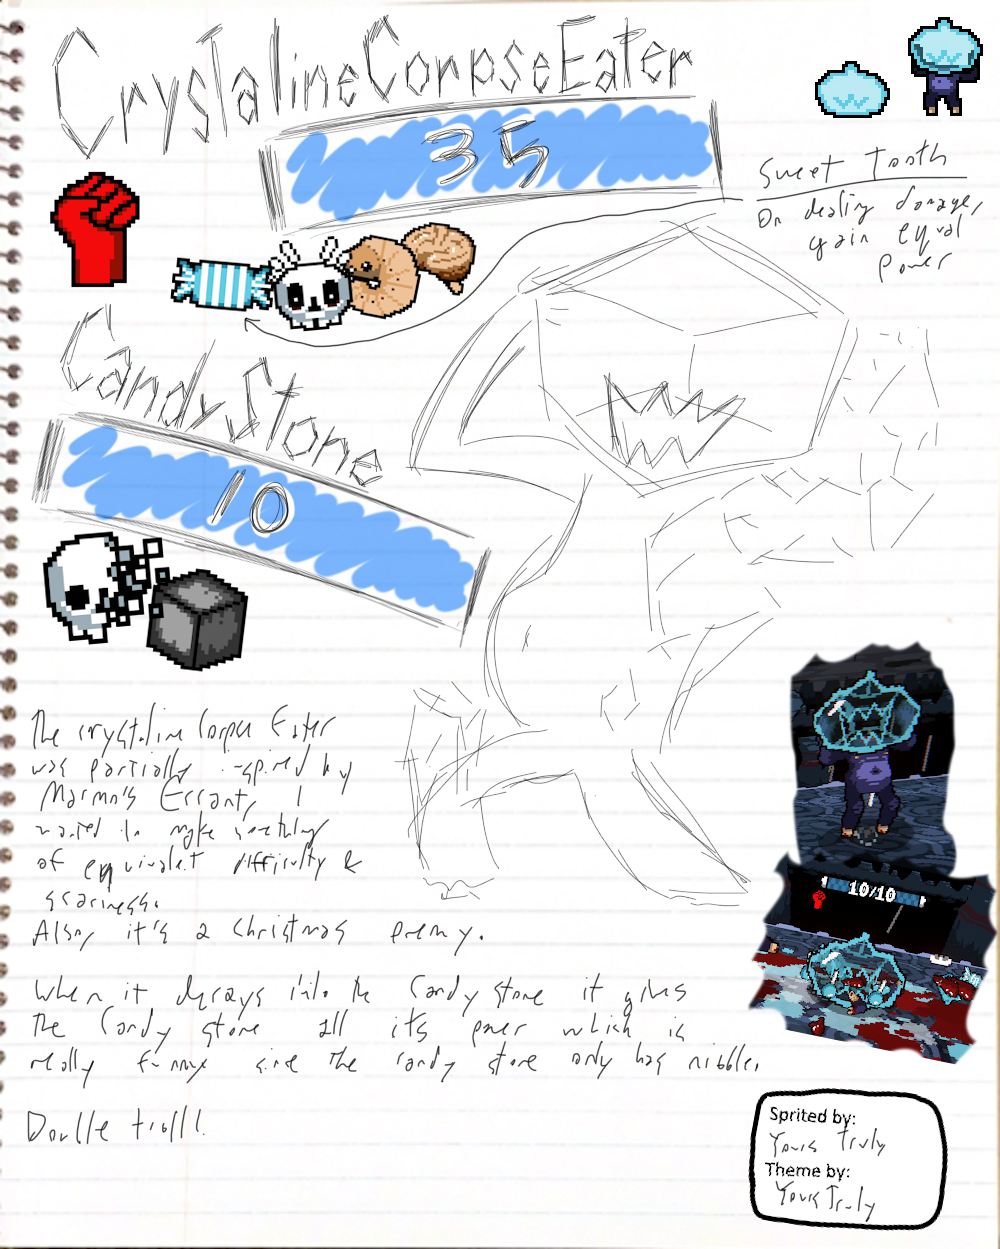 CrystalineCorpseEater
35
Sweet Tooth
On dealing damage,
gain equal
power
CandyStone
10
The crystaline Corpse Eater
was partially inspired by
Marmo's Errant, I
wanted to make something
of equivalent difficulty &
scariness.
Also, it's a christmas enemy.
10/10
When it decays into the Candy stone it gives
the Candy stone all its power which is
really funny since the candy stone only has nibble.
Double troll!
Sprited by:
Yours Truly
Theme by:
Yours Truly